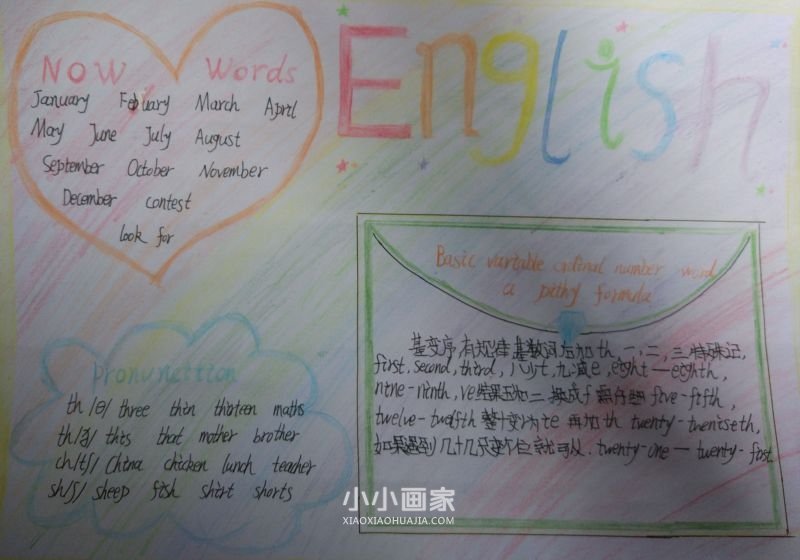 English
Now Words
January Febuary March April
May June July August
September October November
December contest
look for
Basic variable ordinal number word
a pithy formula
基变序,有规律,基数词后加th,一,二,三特殊记,
first,second,third,八以t,九减e,eight—eighth,
nine-ninth,ve结尾 f five-fifth,
twelve-twelfth 整十变y为ie 再加th twenty-twentieth,
如果遇到几十几只变个位就可以.twenty-one—twenty-first.
Pronunettion
th /θ/ three thin thirteen maths
th/ð/ this that mother brother
ch/tʃ/ China chicken lunch teacher
sh/ʃ/ sheep fish shirt shorts
小小画家
XIAOXIAOHUAJIA.COM